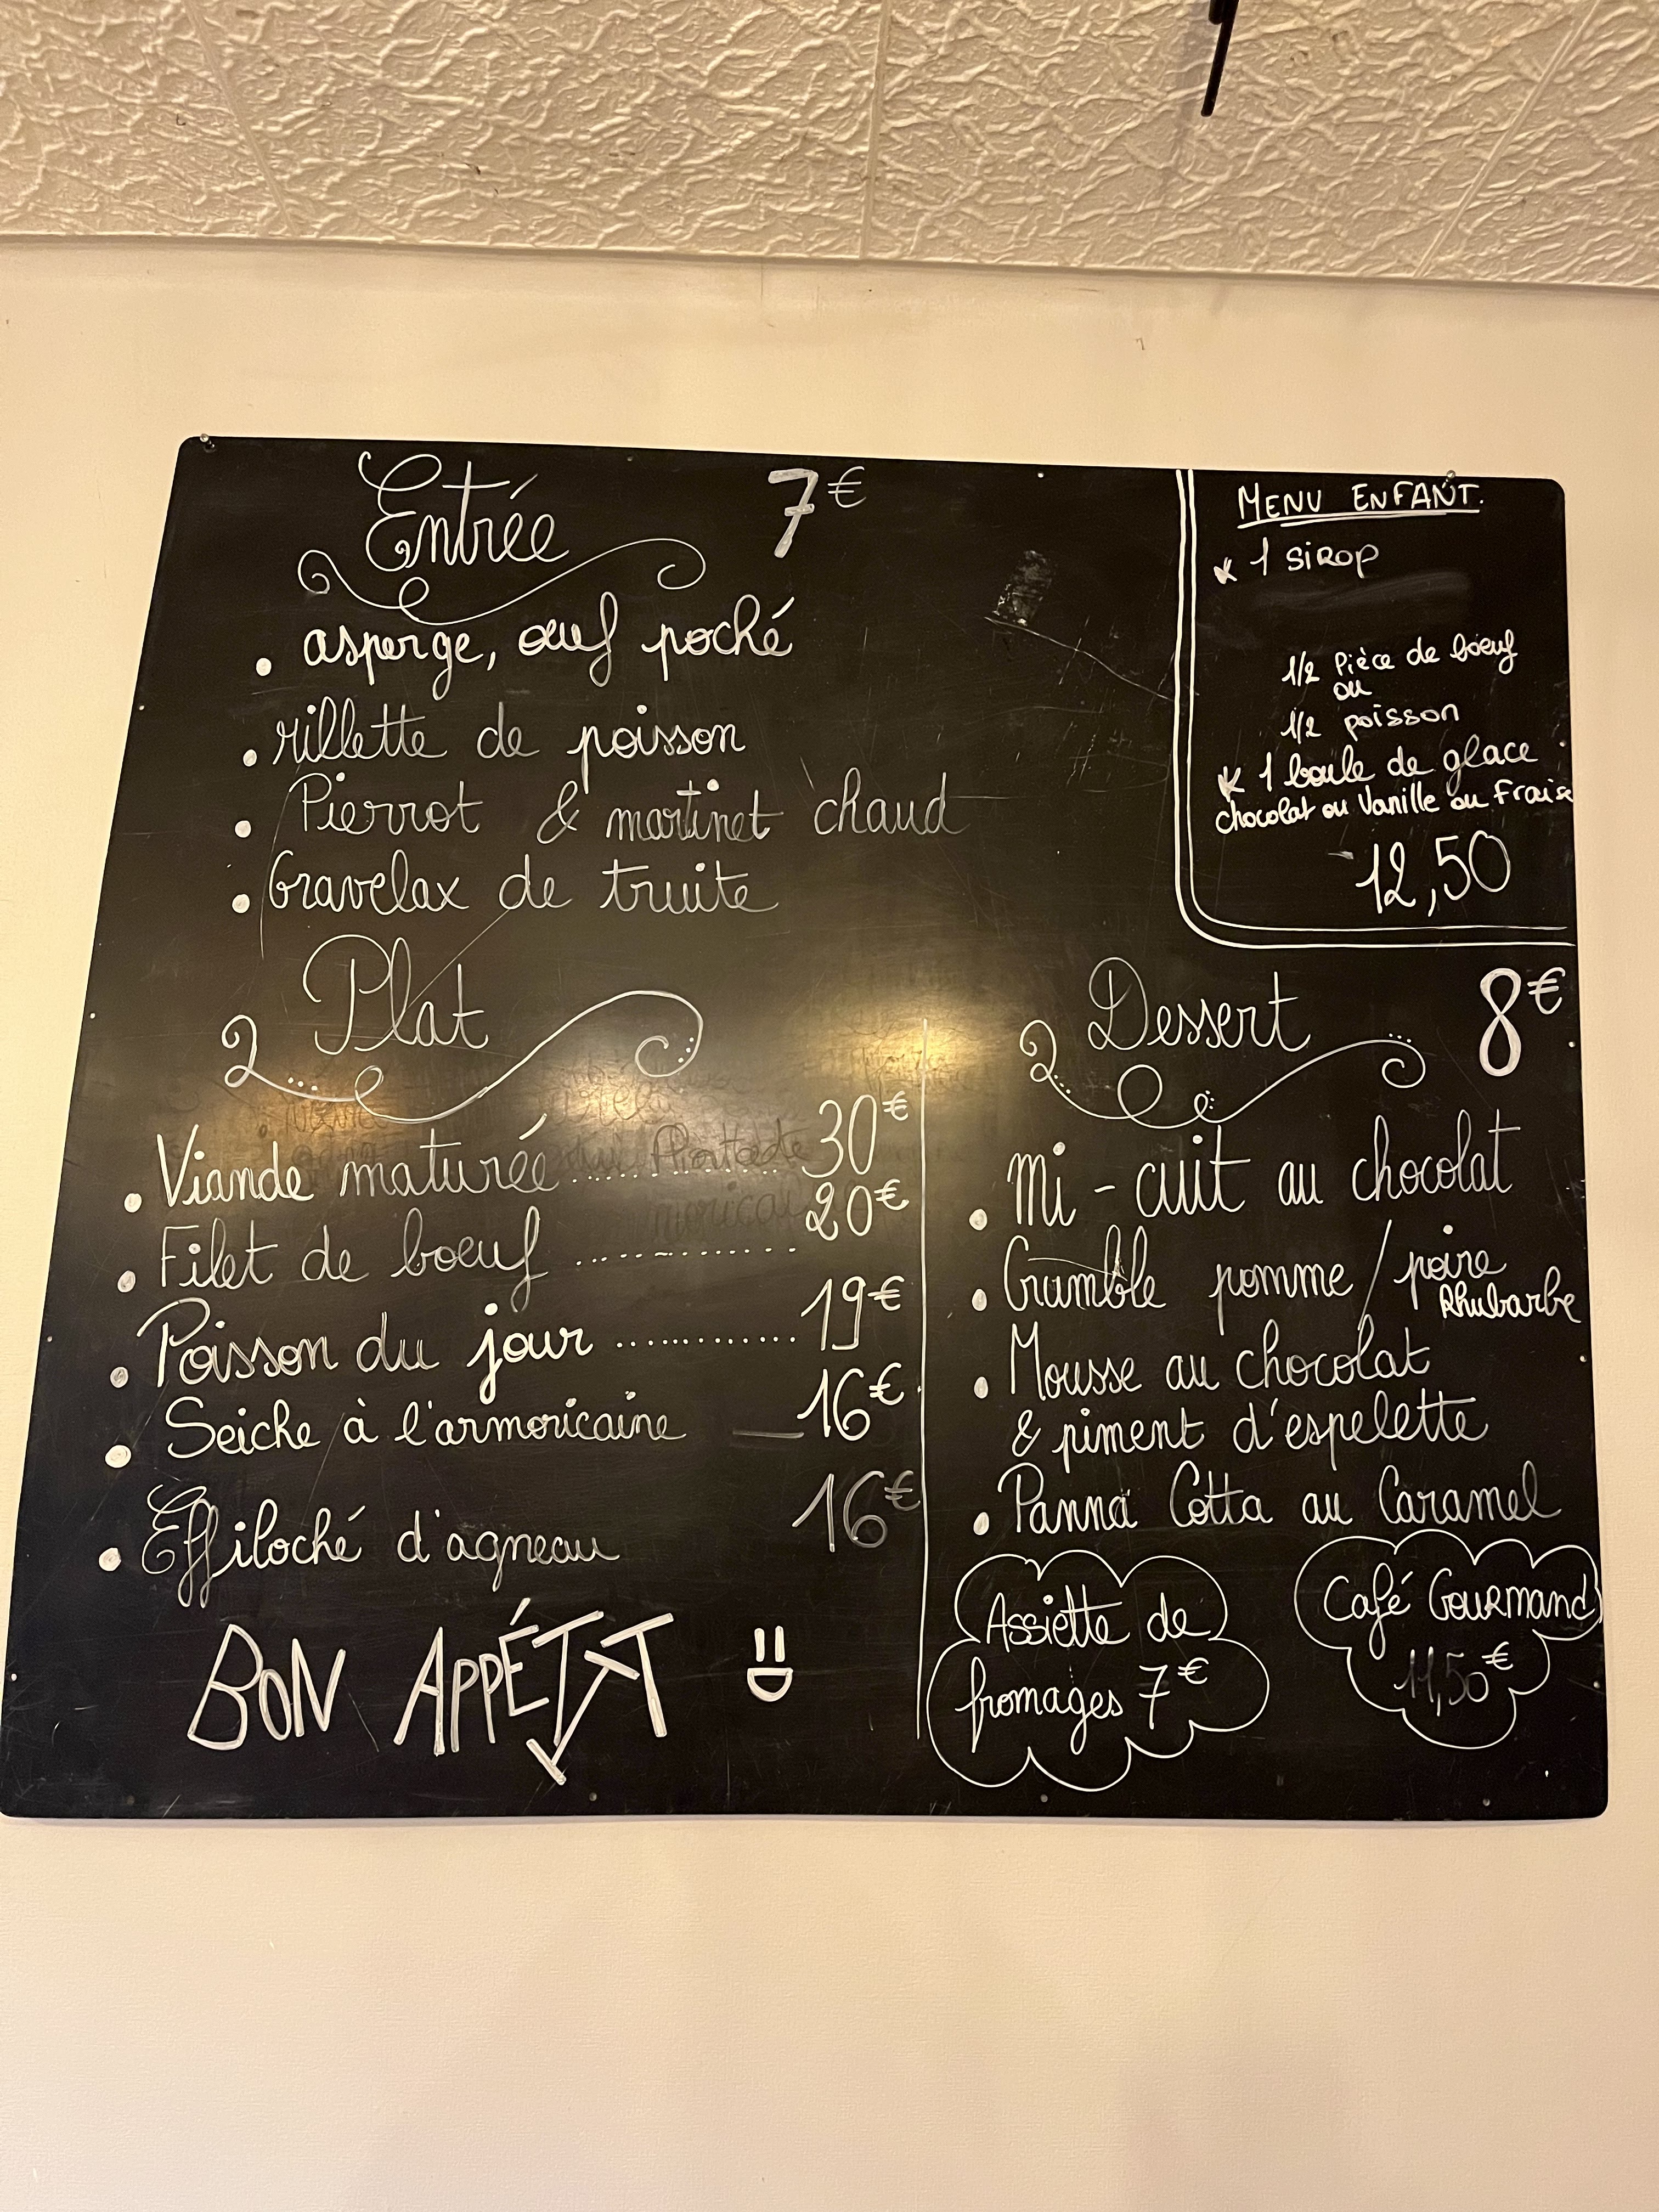 Entrée 7€
. asperge, œuf poché
. rillette de poisson
. Pierrot & martinet chaud
. Gravelax de truite
MENU ENFANT.
* 1 SIROP
1/2 Pièce de bœuf
ou
1/2 poisson
* 1 boule de glace
chocolat ou Vanille ou Fraise
12,50
Plat
. Viande maturée ............... 30€
. Filet de bœuf ............... 20€
. Poisson du jour ............... 19€
. Seiche à l'armoricaine __ 16€
. Effiloché d'agneau 16€
BON APPÉTIT
Dessert 8€
. Mi-cuit au chocolat
. Crumble pomme / poire
Rhubarbe
. Mousse au chocolat
& piment d'espelette
. Panna Cotta au Caramel
Assiette de
fromages 7€
Café Gourmand
11,50€